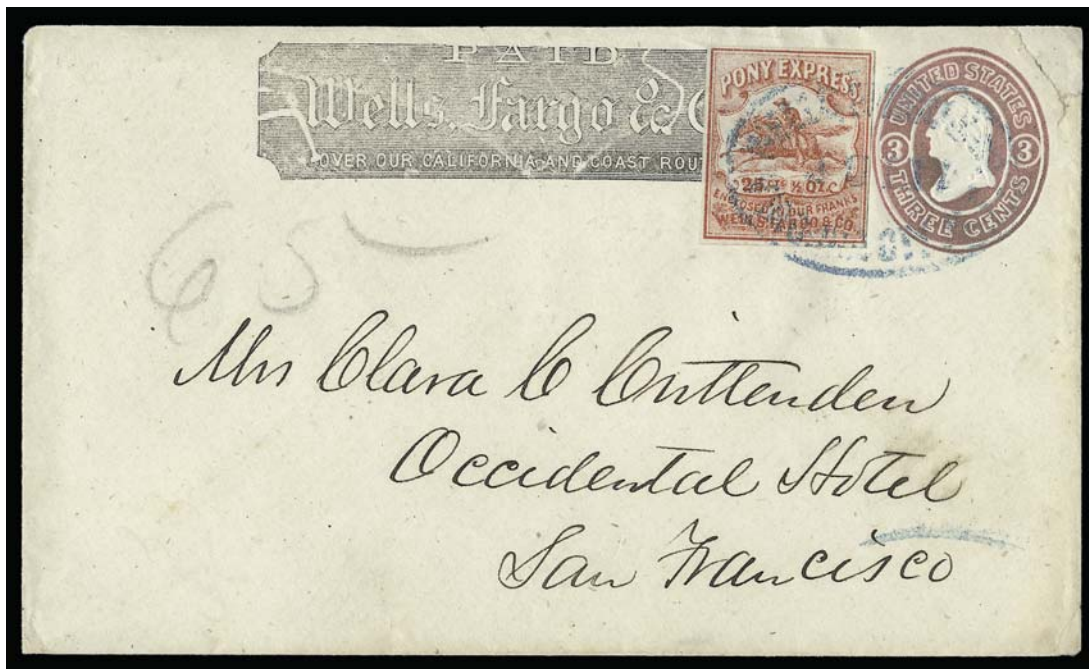 PAID
Wells, Fargo &
OVER OUR CALIFORNIA AND COAST ROUT
PONY EXPRESS.
25 ½ OZ.
ENCLOSED IN OUR FRANKS
WELLS FARGO & CO.
UNITED STATES
3 3
THREE CENTS
65
Mrs Clara C Crittenden
Occidental Hotel
San Francisco